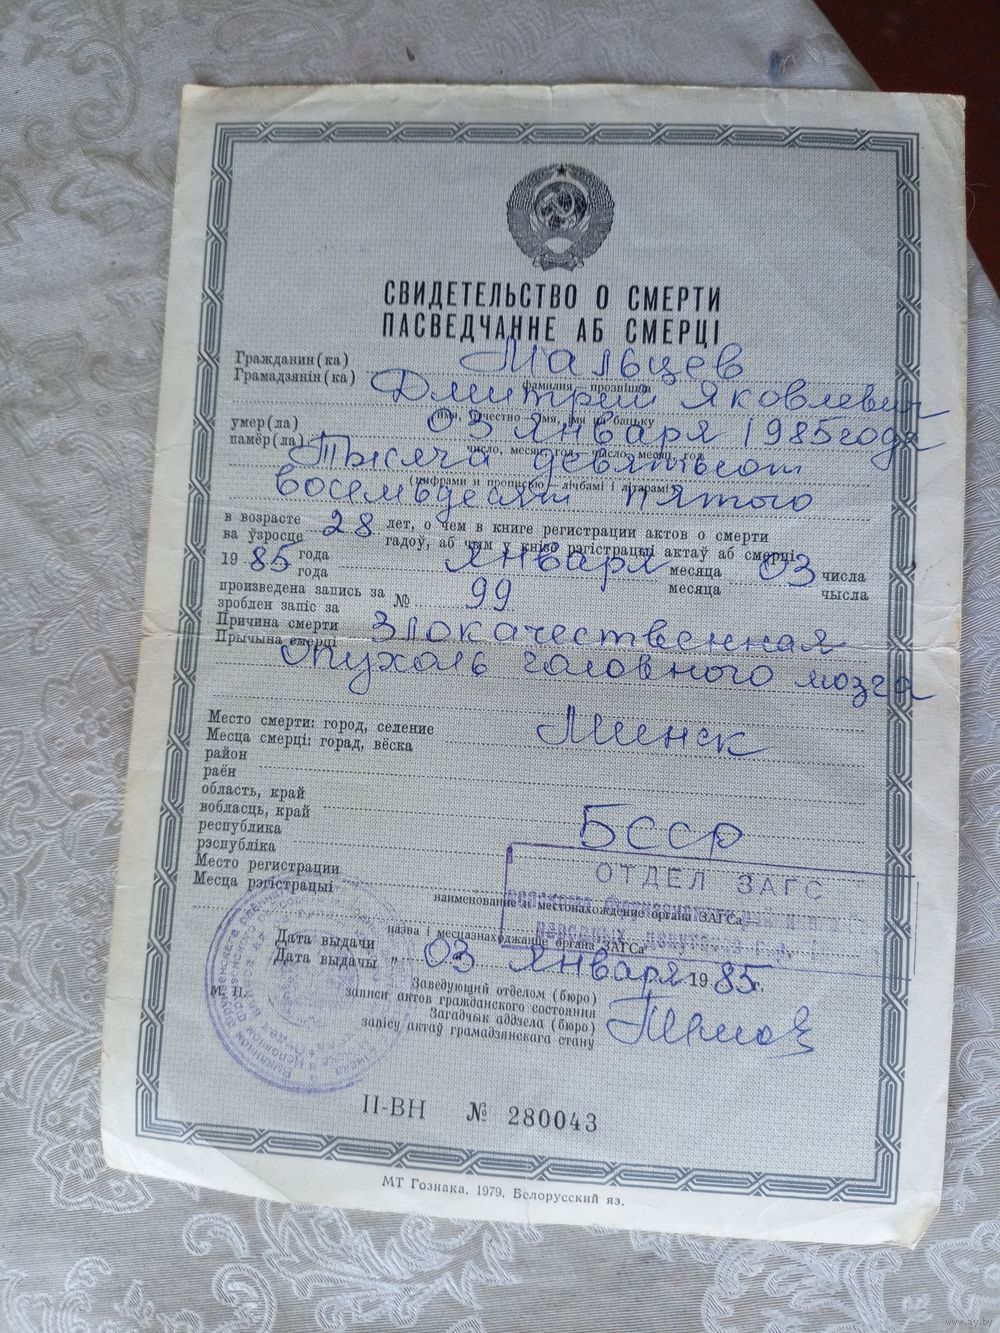 СВИДЕТЕЛЬСТВО О СМЕРТИ
ПАСВЕДЧАННЕ АБ СМЕРЦІ
Гражданин(ка) Мальцев
Грамадзянін(ка)
фамилия — прозвішча
Дмитрий Яковлевич
имя, отчество — імя, імя па бацьку
умер(ла) 03 Января 1985 года
памёр(ла)
число, месяц, год — число, месяц, год
Тысяча девятьсот
(цифрами и прописью — лічбамі і літарамі)
восемьдесят пятого
в возрасте 28 лет, о чем в книге регистрации актов о смерти
ва ўзросце гадоў, аб чым у кнізе рэгістрацыі актаў аб смерці
19 85 года Января месяца 03 числа
года месяца чысла
произведена запись за № 99
зроблен запіс за
Причина смерти Злокачественная
Прычына смерці
опухоль головного мозга
Место смерти: город, селение Минск
Месца смерці: горад, вёска
район
раён
область, край
вобласць, край
республика БССР
рэспубліка
Место регистрации ОТДЕЛ ЗАГС
Месца рэгістрацыі
наименование и местонахождение органа ЗАГСа
назва і месцазнаходжанне органа ЗАГСа
Дата выдачи „ 03 Января 19 85 г.
Дата выдачы
М. П.
Заведующий отделом (бюро)
записи актов гражданского состояния
Загадчык аддзела (бюро)
запісу актаў грамадзянскага стану
II-ВН № 280043
МТ Гознака. 1979. Белорусский яз.
www.ay.by